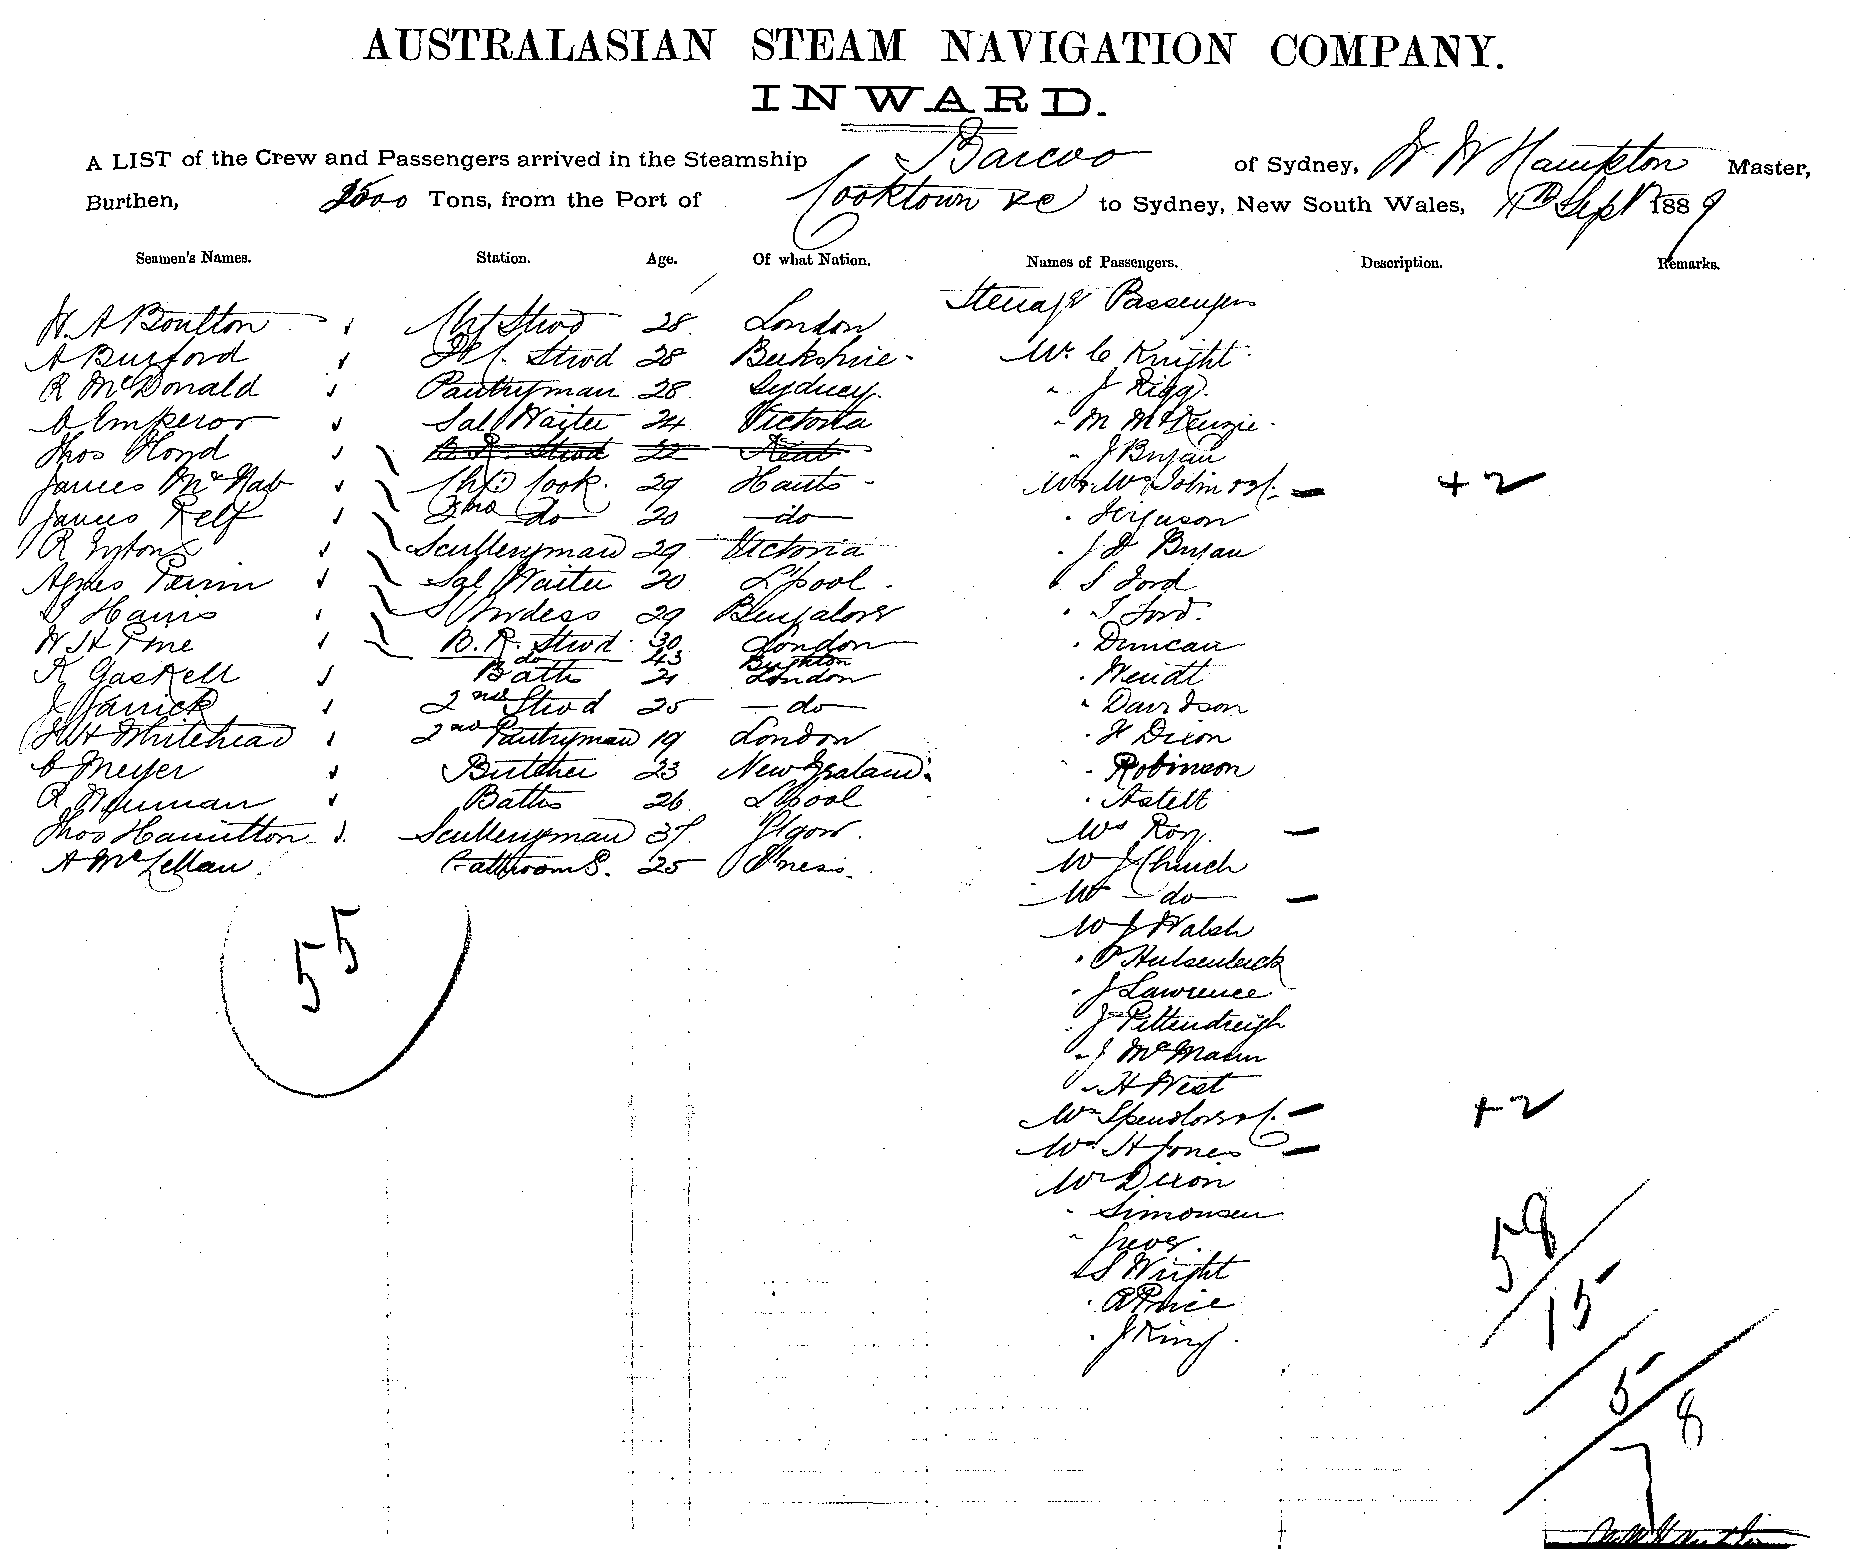 AUSTRALASIAN STEAM NAVIGATION COMPANY.
INWARD.
A LIST of the Crew and Passengers arrived in the Steamship Barcoo of Sydney, W W Hampton Master,
Burthen, 2500 Tons, from the Port of Cooktown &c to Sydney, New South Wales, 11th Sept 1889
Seamen's Names. Station. Age. Of what Nation. Names of Passengers. Description. Remarks.
Steerage Passengers
W. A Boulton Chf Stwd 28 London
A Burford Stwd 28 Berkshire Mr C Knight
R McDonald Pantryman 28 Sydney " J Rigg
C Emperor Sal Waiter 24 Victoria " M McKenzie
Thos Hond B. R. Stwd 22 Kent " J Bryan
James McNab Chf Cook. 29 Hants Mr Mrs Tobin & Cf. — +2
James Relf 2nd do 20 do " Ferguson
R Sculleryman 29 Victoria " J D Bryan
Agnes Perrin Sal Waiter 20 L'pool " S Ford
S Harris Stwdess 29 Bungalore " T Ford
W H Pine B. R. Stwd 30 London " Duncan
do 43 Brighton
K Gaskell Baths 21 London " Wendt
J Warrick 2nd Stwd 25 do " Davidson
J W H Whitehead 2nd Pantryman 19 London " H Dixon
C Meyer Butcher 23 New Zealand " Robinson
R Newman Baths 26 L'pool " Astelt
Thos Hamilton Sculleryman 37 Glgow. Mrs Roy —
A McLellan Bathrooms. 25 I'ness. Mr J Church
Mrs do —
Mr J Walsh
" P Hulsenbeck
" J Lawrence
" J Pittendreigh
" J McMann
" H West
55
Mrs Spendlove & Cf. — +2
Mrs H Jones —
Mr Dixon
" Simonsen
"
" S Wright
" A Price
" J King
58
15
5
78